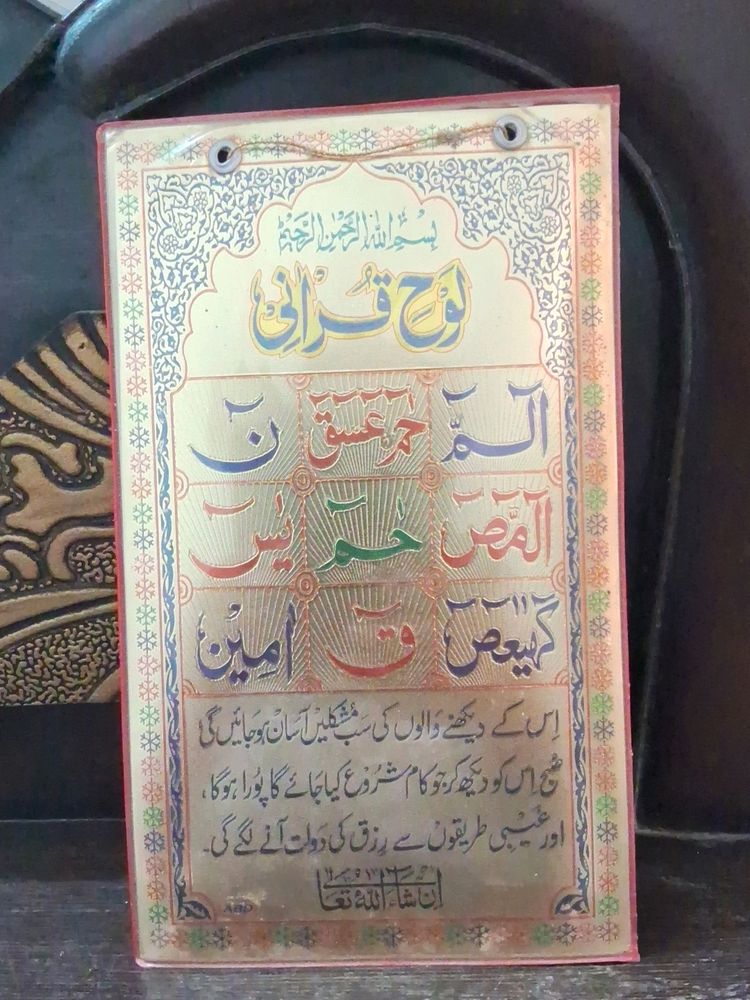 بسم الله الرحمن الرحيم
لوح قرآنی
الٓمّٓ حٰمٓ عٓسٓقٓ نٓ
الٓمّٓصٓ حٰمٓ یٰسٓ
كٓهٰيٰعٓصٓ قٓ اٰمِیْن
اِس کے دیکھنے والوں کی سب مُشکلیں آسان ہو جائیں گی
صُبح اِس کو دیکھ کر جو کام شروع کیا جائے گا پُورا ہوگا،
اور غَیبی طریقوں سے رِزق کی دولت آنے لگے گی۔
اِنْ شَآءَ اللّٰهُ تَعَالٰی
ABD